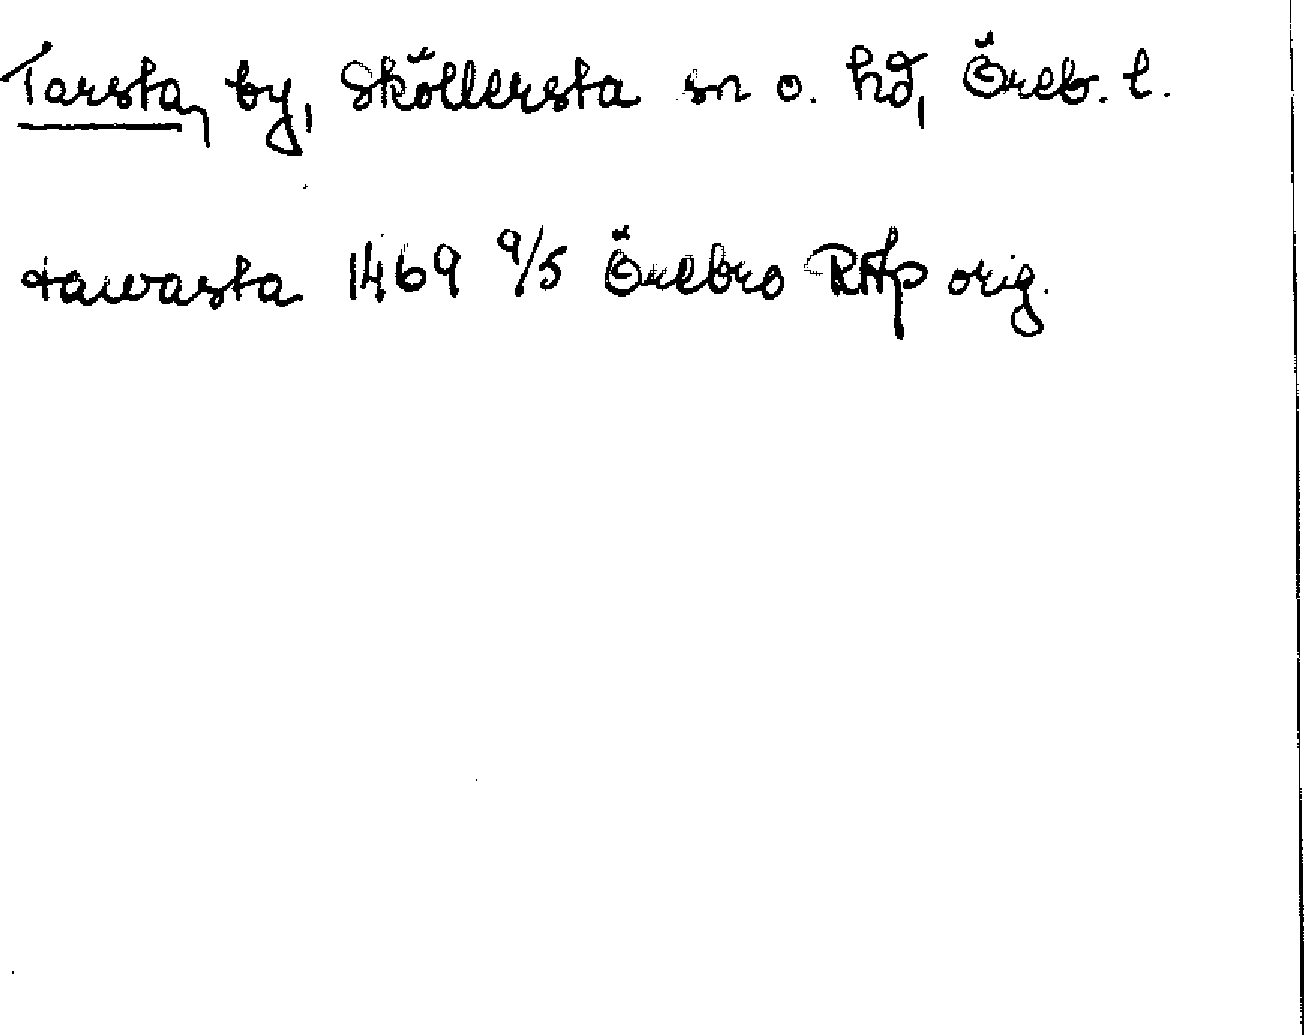 Tarsta, by, Sköllersta sn o. hd, Öreb. l.
tawasta 1469 9/5 Örebro RAp orig.